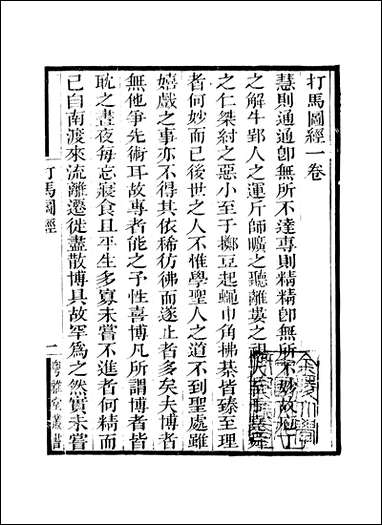 打馬圖經一卷
慧則通通卽無所不達專則精精卽無所不妙故庖丁
之解牛郢人之運斤師曠之聽離婁之視大至于堯舜
之仁桀紂之惡小至于擲豆起蠅巾角拂棊皆臻至理
者何妙而已後世之人不惟學聖人之道不到聖處雖
嬉戲之事亦不得其依稀彷彿而遂止者多矣夫博者
無他爭先術耳故專者能之予性喜博凡所謂博者皆
耽之晝夜每忘寢食且平生多寡未嘗不進者何精而
已自南渡來流離遷徙盡散博具故罕爲之然實未嘗
打馬圖經
一
粵雅堂叢書